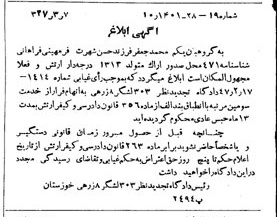 شماره ۱۹-۲۸-۱۴۰۱/۱۰ر۱ ۷ر۳ر۳۲۷
آگهی ابلاغ
به گروهبان یکم محمد جعفر فرزند حسن شهرت فرمهینی فراهانی
شناسنامه ۴۷۱ محل صدور اراک متولد ۱۳۱۳ درجه دار ارتش و فعلا
مجهول المکان است ابلاغ میگردد که بموجب رأی غیابی شماره ۱۴۱۴-
۴۷/۲/۱۷ دادگاه تجدید نظر ۳۰۳ لشگر ۸ زرهی به اتهام فرار از خدمت
سومین مرتبه با انطباق بند الف از ماده ۳۵۶ قانون دادرسی و کیفر ارتش بمدت
۱۳ ماه حبس عادی محکوم گردیده اید
چنانچه قبل از حصول مرور زمان قانونی دستگیر
و یا شخصاً حاضر نشوید برابر ماده ۲۶۳ قانون دادرسی و کیفر ارتش از تاریخ
اعلام حکم تا پنج روز حق اعتراض به حکم غیابی و تقاضای رسیدگی مجدد
در این دادگاه را خواهید داشت
رئیس دادگاه تجدید نظر ۳۰۳ لشگر ۸ زرهی خوزستان
پ ۲۴۹۴